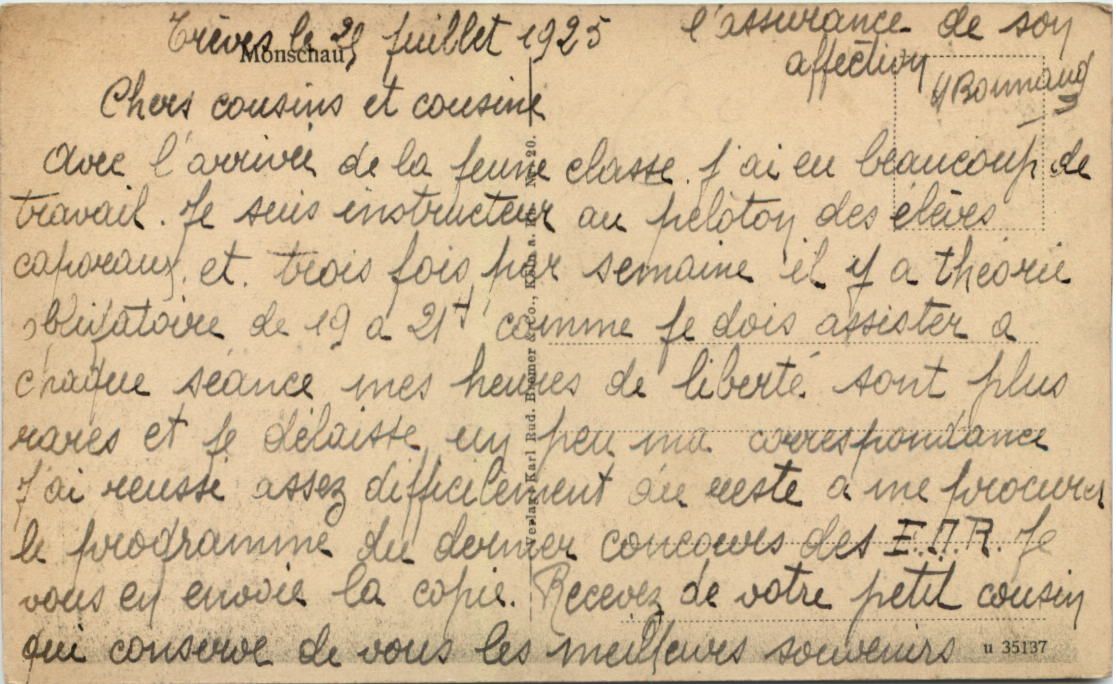 Trèves le 29 juillet 1925
Monschau
Chers cousins et cousine
Avec l'arrivée de la jeune classe j'ai eu beaucoup de
travail. Je suis instructeur au peloton des élèves
caporaux, et trois fois par semaine il y a théorie
obligatoire de 19 a 21h comme je dois assister a
chaque séance mes heures de liberté sont plus
rares et je délaisse un peu ma correspondance
J'ai reussi assez difficilement du reste a me procurer
le programme du dernier concours des E.O.R. Je
vous en envoie la copie. Recevez de votre petit cousin
qui conserve de vous les meilleurs souvenirs
l'assurance de son
affection
Bonnaud
Verlag: Karl Rud. Bremer & Co., Köln a. Rh. No 20.
u 35137